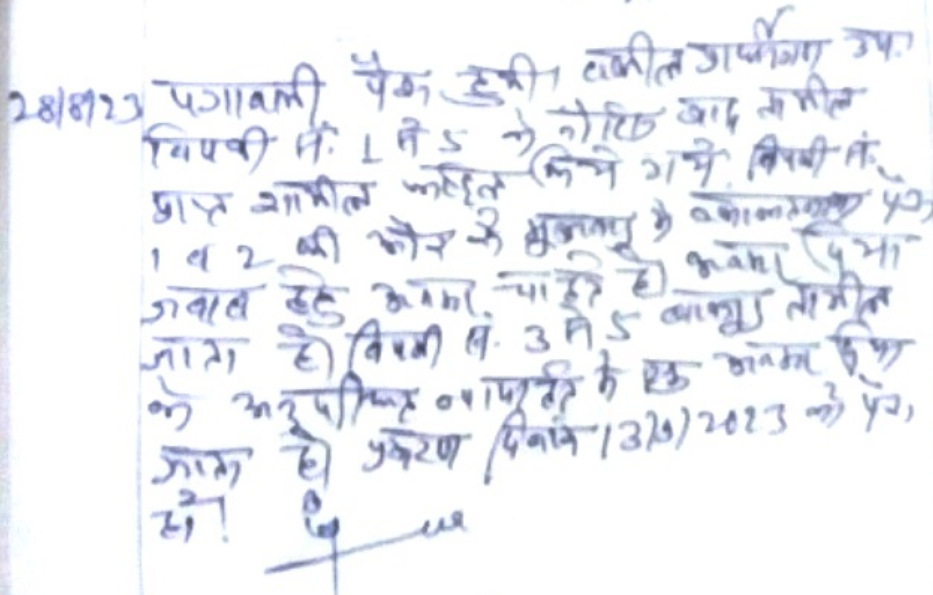 28/8/23 पत्रावली पेश हुयी। वकील प्रार्थीगण उप.
विपक्षी सं. 1 से 5 को नोटिस बाद तामील
प्राप्त शामील किये गये विपक्षी सं.
1 व 2 की और से वकालतनामा पेश
जवाब हेतु अवसर चाहते है। अवसर दिया
जाता है। विपक्षी सं. 3 से 5 बावजूद तामील
के अनुपस्थित न्यायहित में एक अवसर दिया
जाता है। प्रकरण दिनांक 13/9/2023 को पेश
हो।